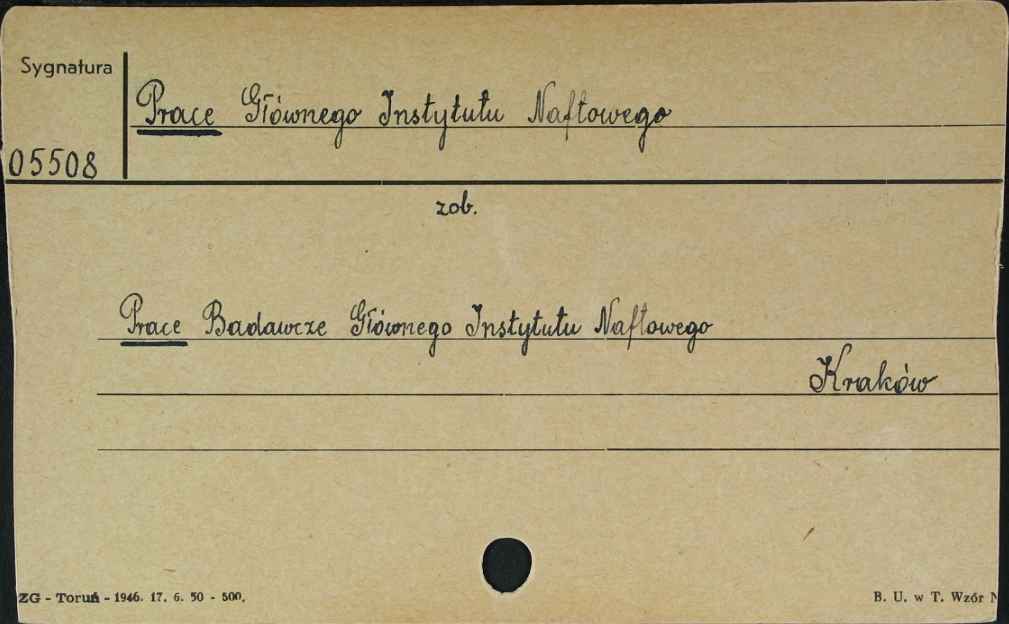 Sygnatura
Prace Głównego Instytutu Naftowego
05508
zob.
Prace Badawcze Głównego Instytutu Naftowego
Kraków
ZG - Toruń - 1946. 17. 6. 50 - 500.
B. U. w T. Wzór N